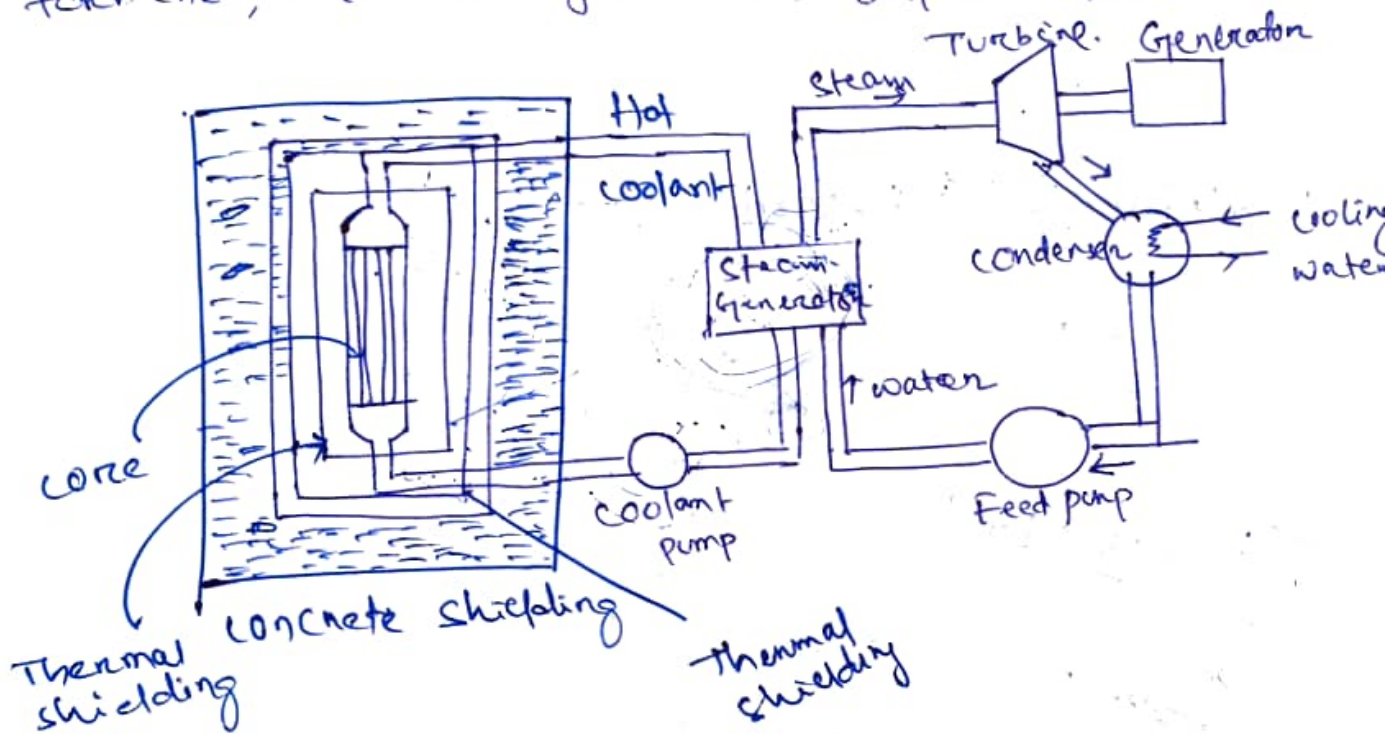 Turbine. Generator
steam
Hot
coolant
cooling
water
condenser
Steam
Generator
water
core
coolant
pump
Feed pump
concrete shielding
Thermal
shielding
Thermal
shielding